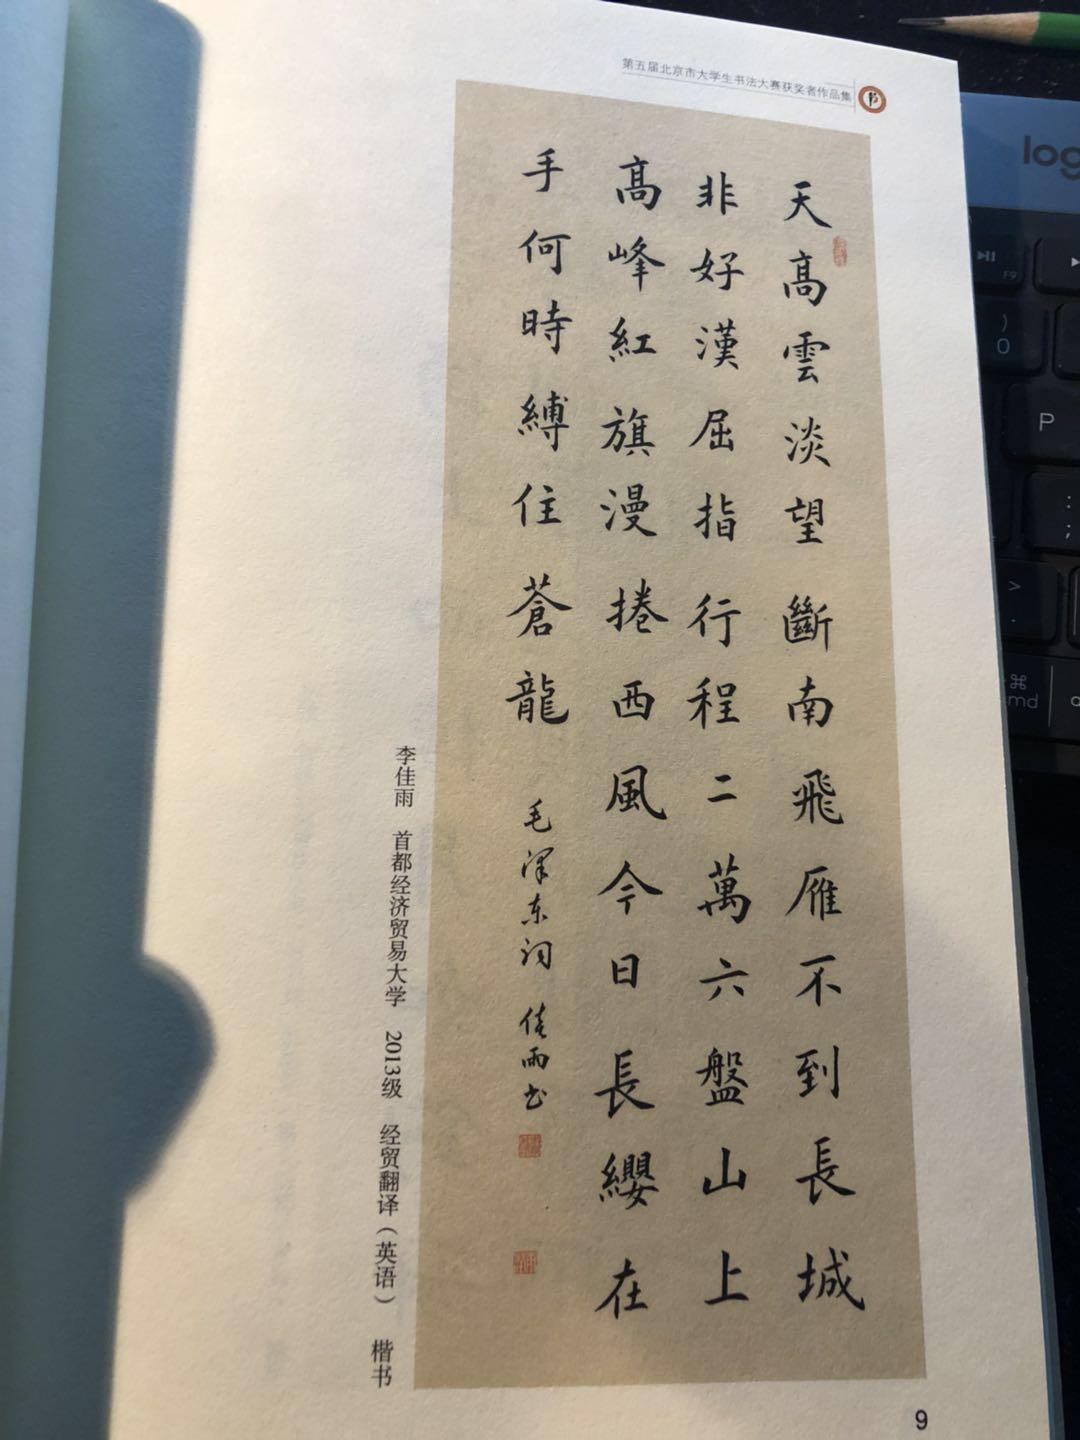 第五届北京市大学生书法大赛获奖者作品集
书
天高雲淡望斷南飛雁不到長城
非好漢屈指行程二萬六盤山上
髙峰紅旗漫捲西風今日長纓在
手何時縛住蒼龍
毛泽东词 佳雨书
李佳雨 首都经济贸易大学 2013级 经贸翻译（英语） 楷书
9
log
F9
)
0
P
:
;
>
⌘
md